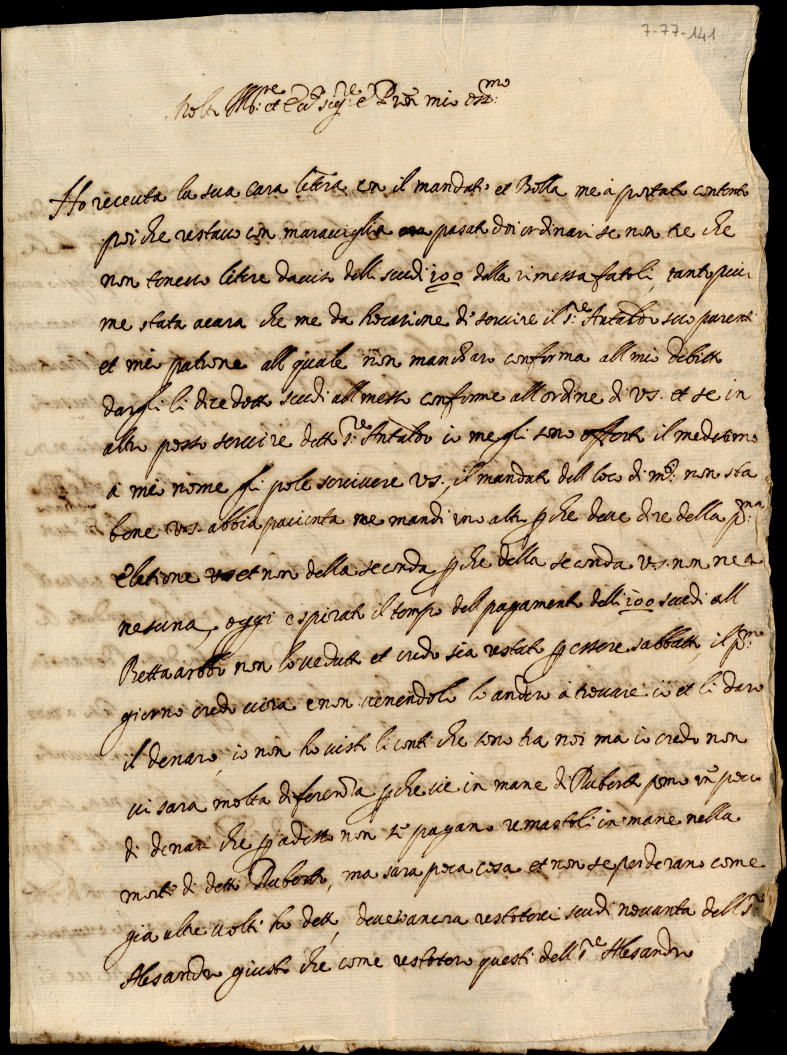 7-77-141
Molto Ill:re et Ecc:te sig:re e Pron mio oss:mo
Ho receuta la sua cara letera con il mandato et Bolla me à portato contento
poi che restavo con maraviglia pasati doi ordinari se non tre che
non tenevo letere daviso delli scudi 100 della rimessa fatoli, tanto piu
me stata acara che me da hocasione di servire il S:re Antaldo suo parente
et mio patrone all quale non mancharo conforma all mio debito
dargli li dicedotto scudi all mese conforme all ordine di vs. et se in
altro posso servire detto S:re Antaldo io me gli sono offerto il medesimo
a mio nome gli pole scrivere vs., il mandato dell loco di m:te non sta
bene vs. abbia pacienta me mandi uno altro p che deve dire della p:ma
Eletione et non della seconda p che della seconda vs. non ne a
nesuna, oggi e spirato il tempo dell pagamento delli 100 scudi all
non lo veduto et credo sia restato p essere sabbato, il p:mo
giorno credo vira e non venendolo lo andero à trovare io et li daro
il denaro, io non ho visto li conti che sono tra noi ma io credo non
vi sara molta diferenza p che vie in mane di Ruberto un poco
di denari che p adesso non se pagano remastoli in mane nella
morte di detto Ruberto, ma sara poca cosa et non se perderano come
gia altre volte ho detto, deve ancora restotorci scudi novanta dell S:re
Alesandro giusto che come restotoro questi dell S:re Alesandro